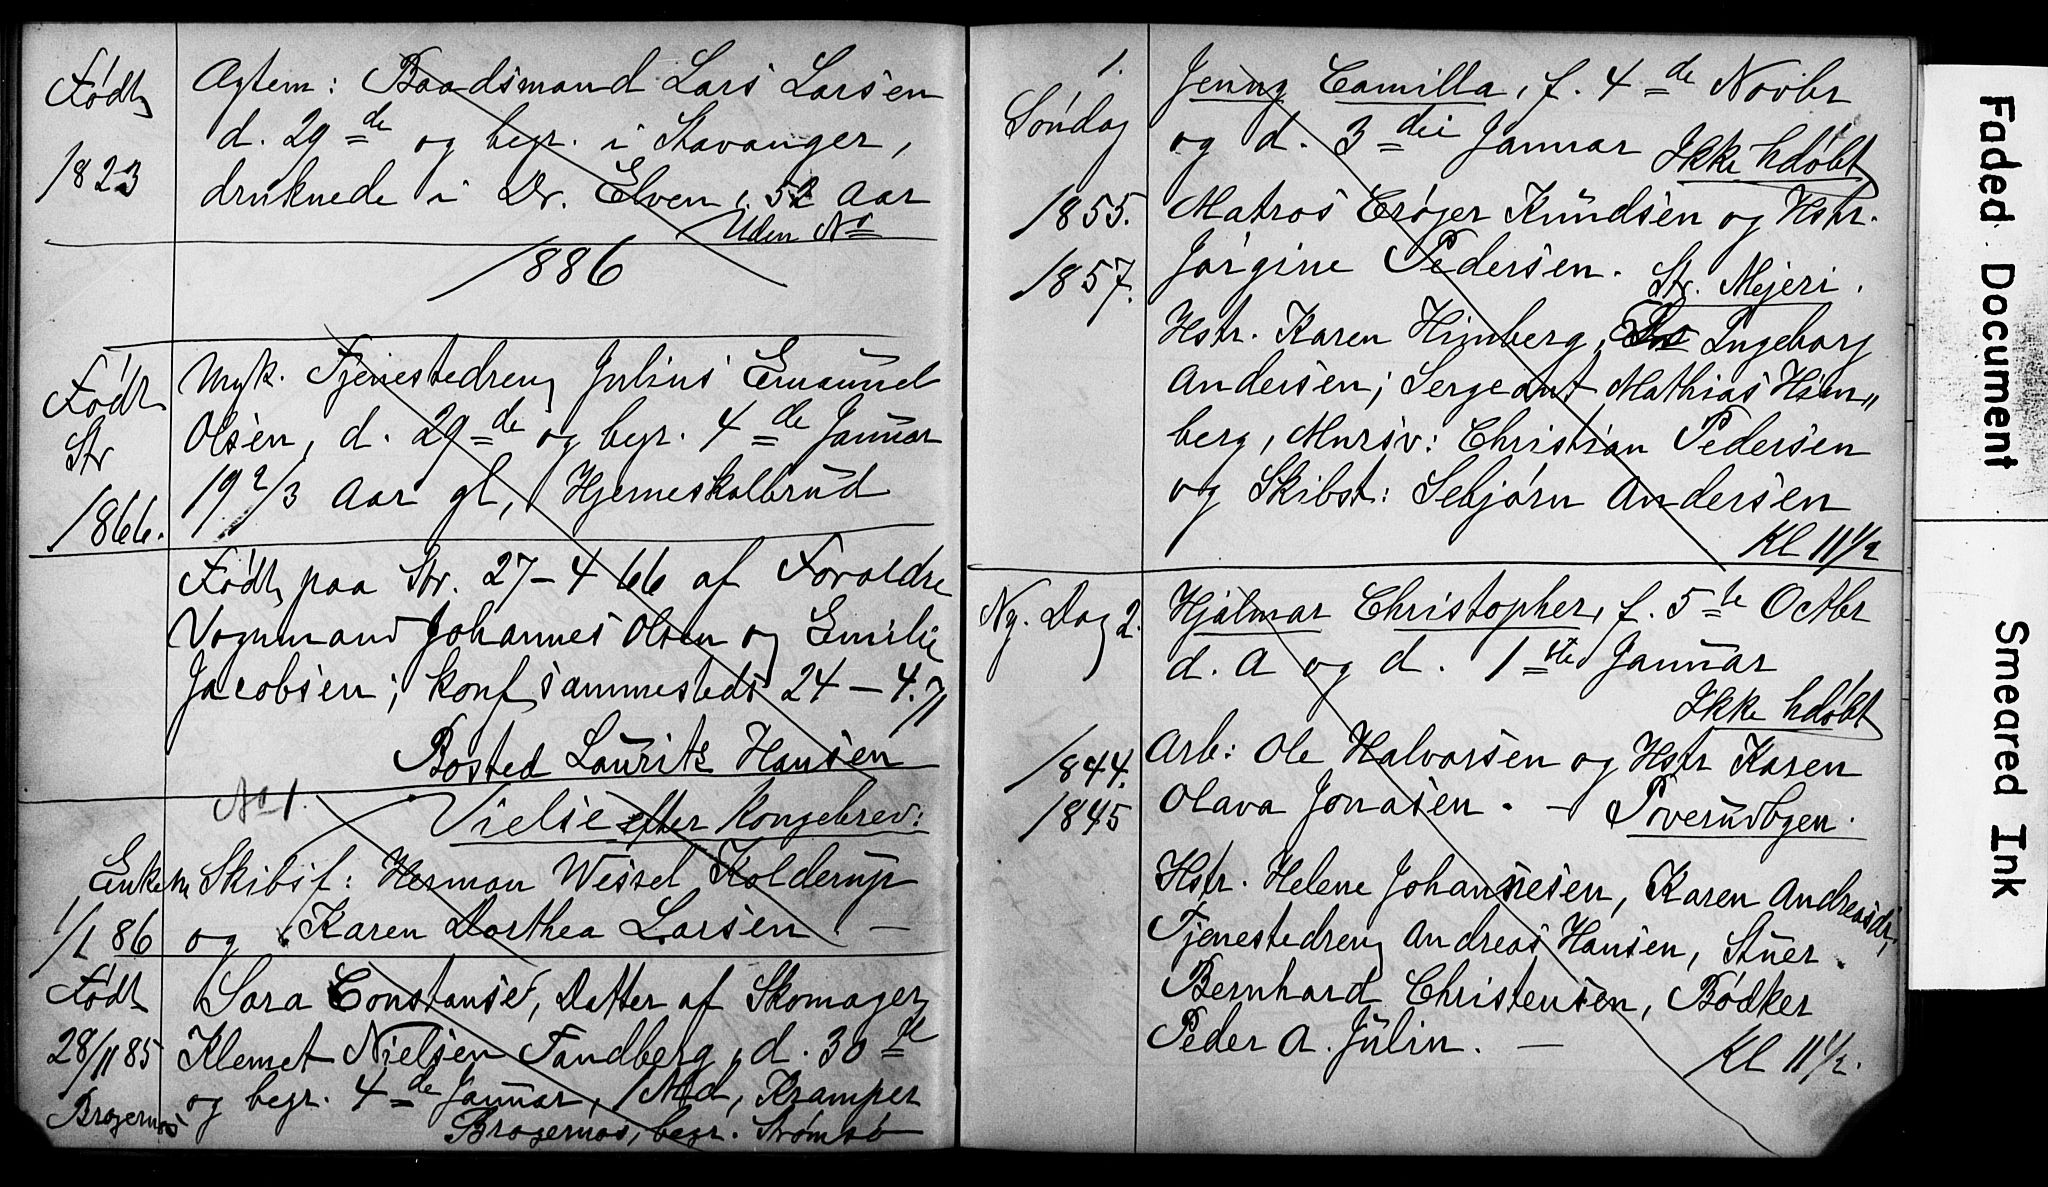 Født
1823
Agtem: Baadsmand Lars Larsen
d. 29de og begr. i Stavanger,
druknede i Dr. Elven, 52 Aar
Uden No
1886
Født
Str
1866.
Myk. Tjenestedreng Julius Emanuel
Olsen, d. 29de og begr. 4de Januar
19 2/3 Aar gl, Hjerneskalbrud
Født paa Str. 27-4 66 af Foraldre
Vognmand Johannes Olsen og Emilie
Jacobsen; konf sammesteds 24-4.
Bosted Lauritz Hansen
No 1.
Vielse efter Kongebrev:
Enkem
1/1 86
Skibsf: Herman Wessel Kolderup
og Karen Dorthea Larsen —
Født
28/11 85
Bragernæs
Sara Constanse, Datter af Skomager
Klemet Nielsen Tandberg, d. 30de
og begr. 4de Januar, 1 Md, Kramper
Bragernæs, begr. Strømsø
1.
Søndag
1855.
1857.
Jenny Camilla, f. 4de Novbr
og d. 3die Januar Ikke hdøbt
Matros Crøger Knudsen og Hstr.
Jørgine Pedersen. Str. Mejeri.
Hstr. Karen Himberg, Ingeborg
Andersen; Sergeant Mathias Him„
berg, Mursv: Christian Pedersen
og Skibst: Sebjørn Andersen
Kl 11 1/2
Ny. Dag 2.
1844.
1845
Hjalmar Christopher, f. 5te Octbr
d. A og d. 1ste Januar
Ikke hdøbt
Arb: Ole Halvorsen og Hstr Karen
Olava Jonasen. — Proverudbgen.
Hstr. Helene Johannesen, Karen Andreasdr,
Tjenestedreng Andreas Hansen, Stuer
Bernhard Christensen, Bødker
Peder A. Julin. —
Kl 11 1/2.
Faded Document
Smeared Ink